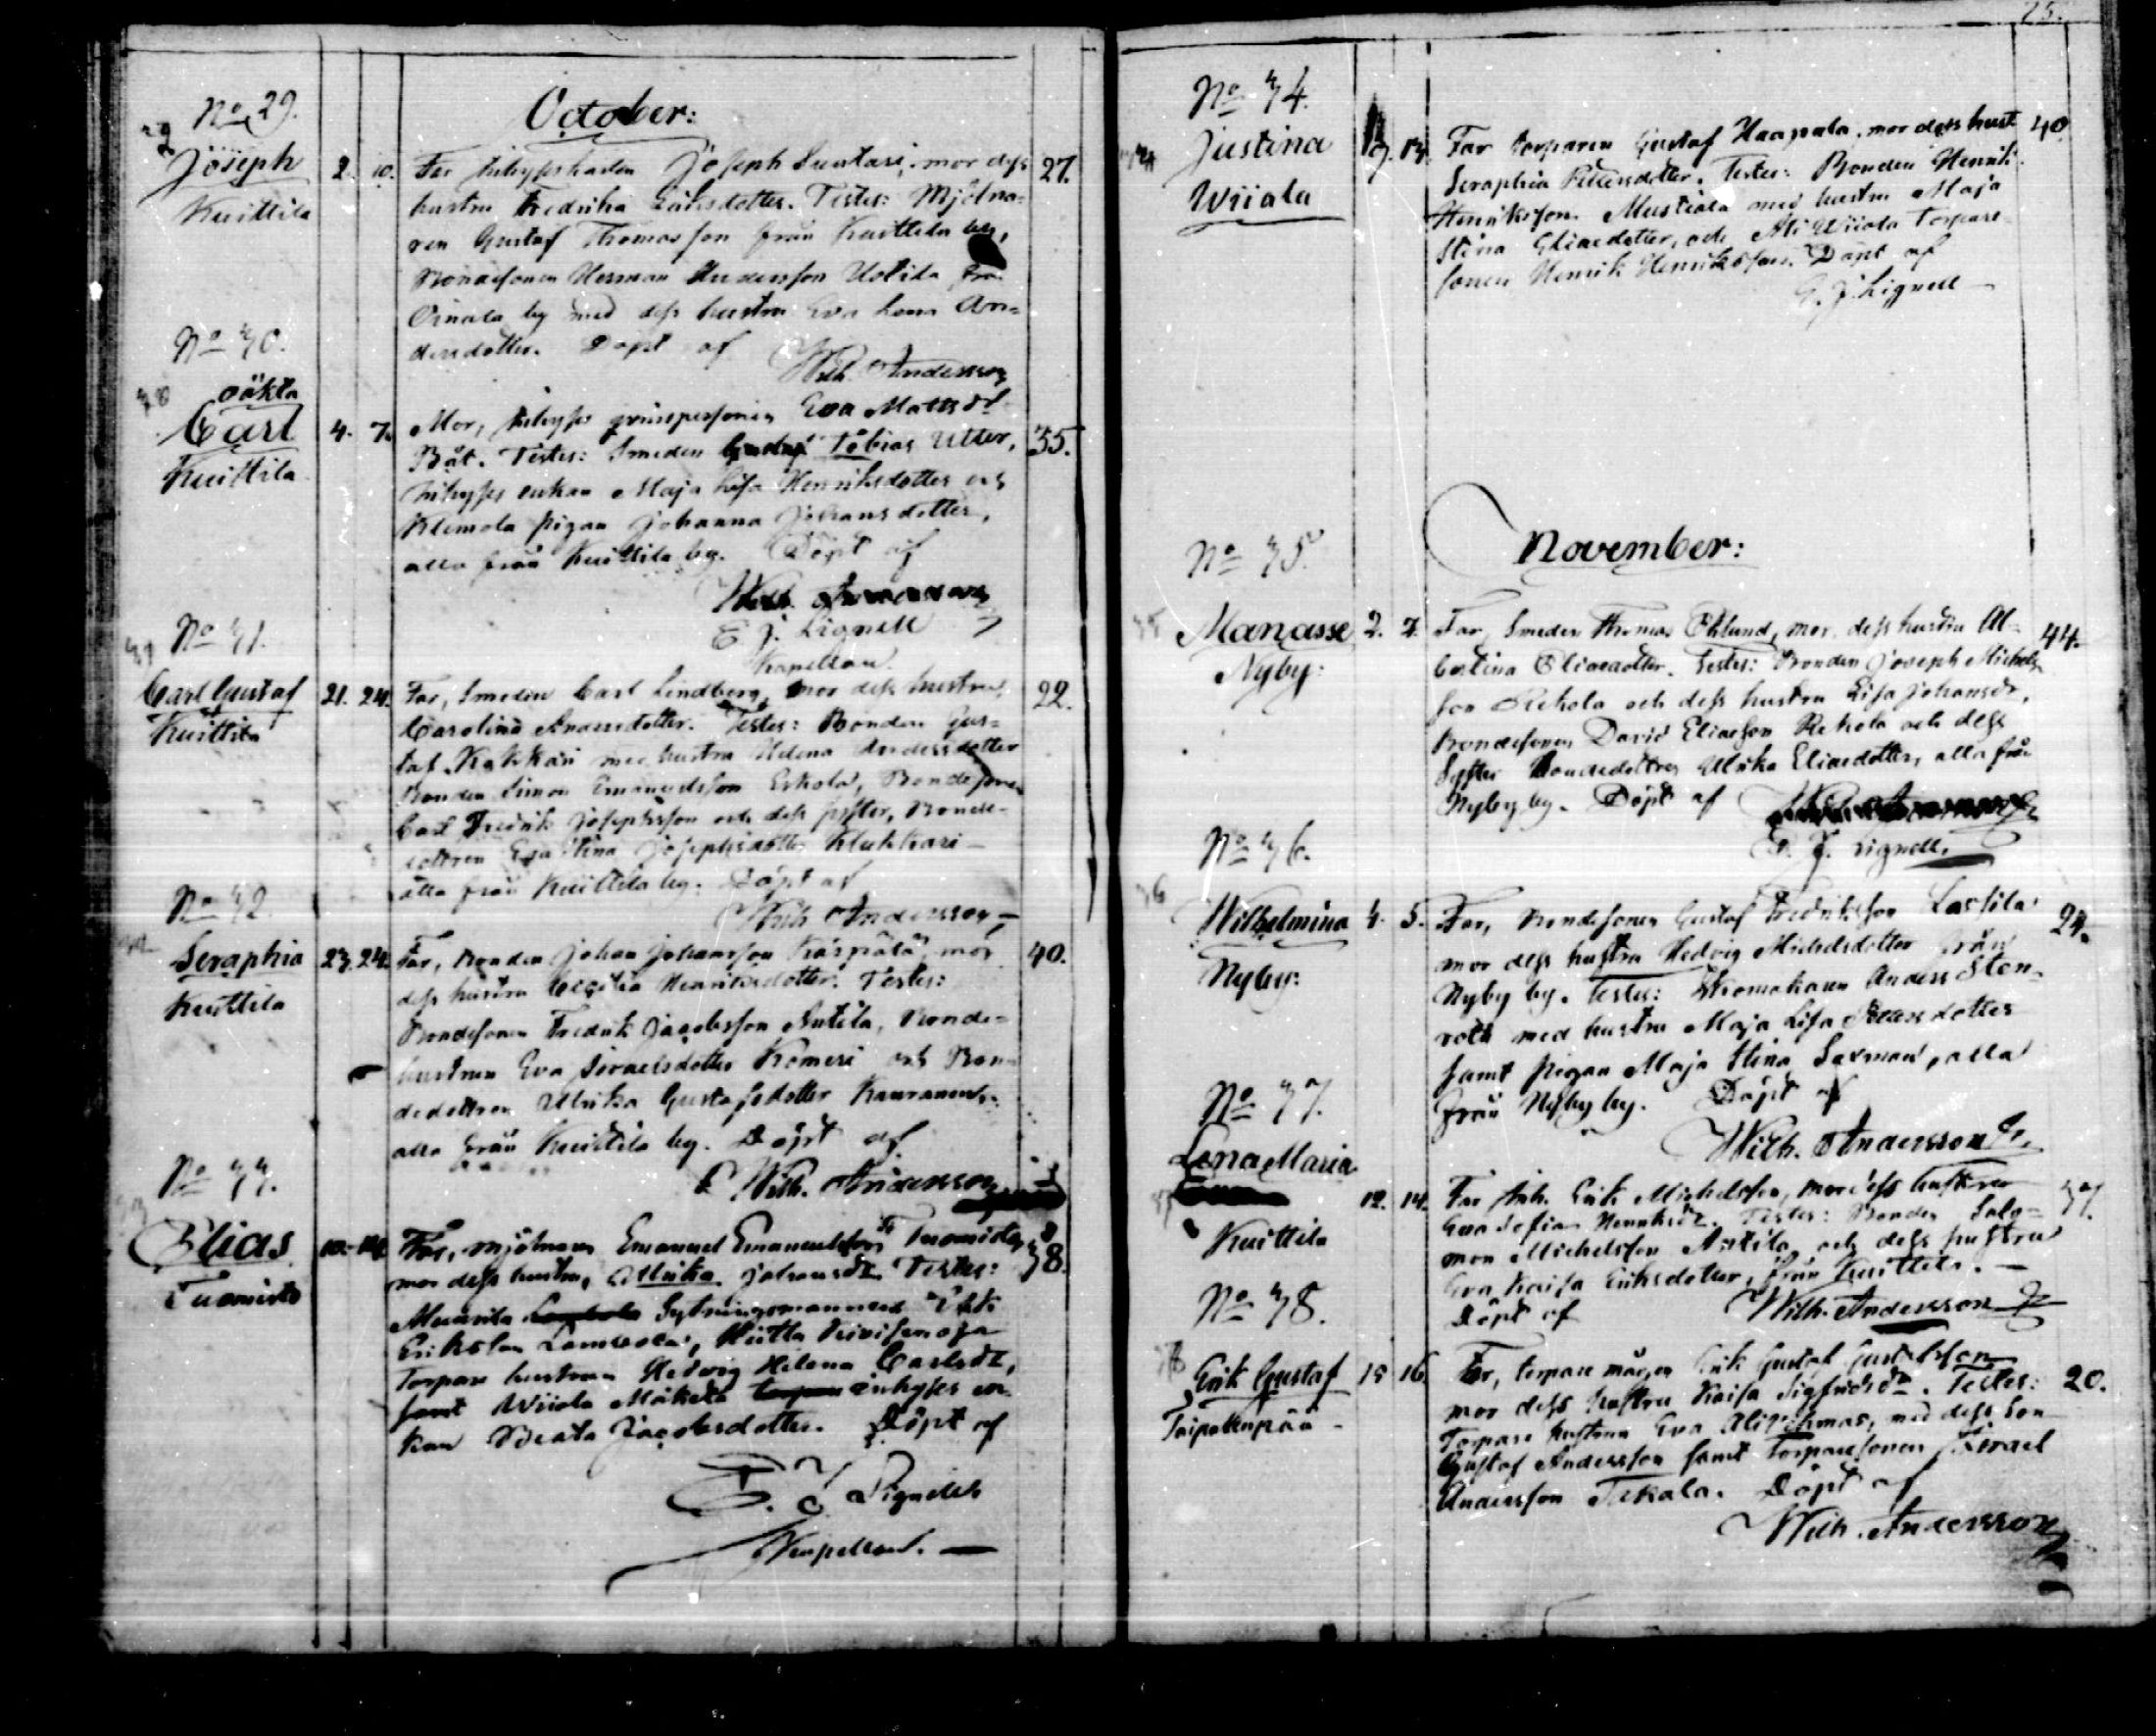 October:
No 29.
Joseph
Kuittila
2. 10.
Far Inhyses karlen Joseph Suntari, mor dess 27.
hustru Fredrika Eriksdotter. Testes: Mjölna=
ren Gustaf Thomasson från Kuittila by,
Bondesonen Herman Andersson Uotila från
Oinala by med dess hustru Eva Lena An=
dersdotter. Döpt af
Wilh. Andersson
No 30.
oäkta
Carl
Kuittila
4. 7.
Mor, Inhyses qvinspersonen Eva Mattsdr 35.
Båt. Testes: Smeden Tobias Utter,
Inhyses enkan Maja Lisa Henriksdotter och
Klemola pigan Johanna Johansdotter,
alla från Kuittila by. Döpt af
E J. Lignell
Kapellan.
No 31.
Carl Gustaf
Kuittila
21. 24.
Far, Smeden Carl Lindberg, mor dess hustru 22.
Carolina Andersdotter. Testes: Bonden Gus=
taf med hustru Helena Andersdotter
Bonden Simon Emanuelsson Eskola, Bondesonen
Carl Fredrik Josephsson och dess syster, Bonde=
dottren Eva Stina Josephsdotter Klukkari
alla från Kuittila by. Döpt af
Wilh Andersson
No 32.
Seraphia
Kuittila
23. 24.
Far, Bonden Johan Johansson mor 40.
dess hustru Cecilia Henriksdotter. Testes:
Bondesonen Fredrik Jacobsson Antila, Bonde=
hustrun Eva Israelsdotter Komeri och Bon=
dedottren Ulrika Gustafsdotter
alla från Kuittila by. Döpt af
Wilh. Andersson
No 33.
Elias
Tuomisto
10. 14.
Far, mjölnaren Emanuel Emanuelsson Tuomisto, 38.
mor dess hustru, Ulrika Johansdr. Testes:
Sytningsmannen
Eriksson
Torpare hustrun Hedvig Helena Carlsdr,
samt Wiiala Mäkelä inhyses en=
kan Beata Jacobsdotter. Döpt af
E. J Lignell
Kapellan.
25.
No 34.
Justina
Wiiala
Far torparen Gustaf Haapala, mor dess hust 40
Seraphia Pettersdotter. Testes: Bonden Henrik
Henriksson Mustiala med hustru Maja
Stina Eliaedotter, och Ali Wiiala Torpare
sonen Henrik Henriksson. Döpt af
E. J. Lignell
November:
No 35.
Manasse
Nyby:
2. 7.
Far, Smeden Thomas Öhlund, mor dess hustru Al= 44.
bertina Eliaedotter. Testes: Bonden Joseph Michels
son Rekola och dess hustru Lisa Johansdr,
Bondesonen David Eliaeson Rekola och dess
syster Bondedottren Ulrika Eliaedotter, alla från
Nyby by. Döpt af
E. J. Lignell.
No 36.
Wilhelmina
Nyby:
4. 5.
Far, Bondesonen Gustaf Fredriksson Lassila 24.
mor dess hustru Hedvig Michelsdotter från
Nyby by. Testes: Skomakaren Anders Sten=
roth med hustru Maja Lisa
samt pigan Maja Stina Saxman, alla
från Nyby by. Döpt af
Wilh. Andersson
No 37.
Lena Maria
Kuittila
12. 14.
Far Inh. Erik Michelsson, mor dess hustru 37.
Eva Sofia Henriksdr. Testes: Bonden Salo=
mon Michelsson Antila och dess hustru
Eva Kaisa Eriksdotter, från Kuittila.
Döpt af Wilh. Andersson
No 38.
Erik Gustaf
Taipalenpää
15 16.
Far, torpare mågen Erik Gustaf Gustafsson
mor dess hustru Kaisa Sigfridsdr. Testes: 20.
Torpare hustrun Eva med dess son
Gustaf Andersson samt Torparesonen Israel
Andersson Tekala. Döpt af
Wilh. Andersson